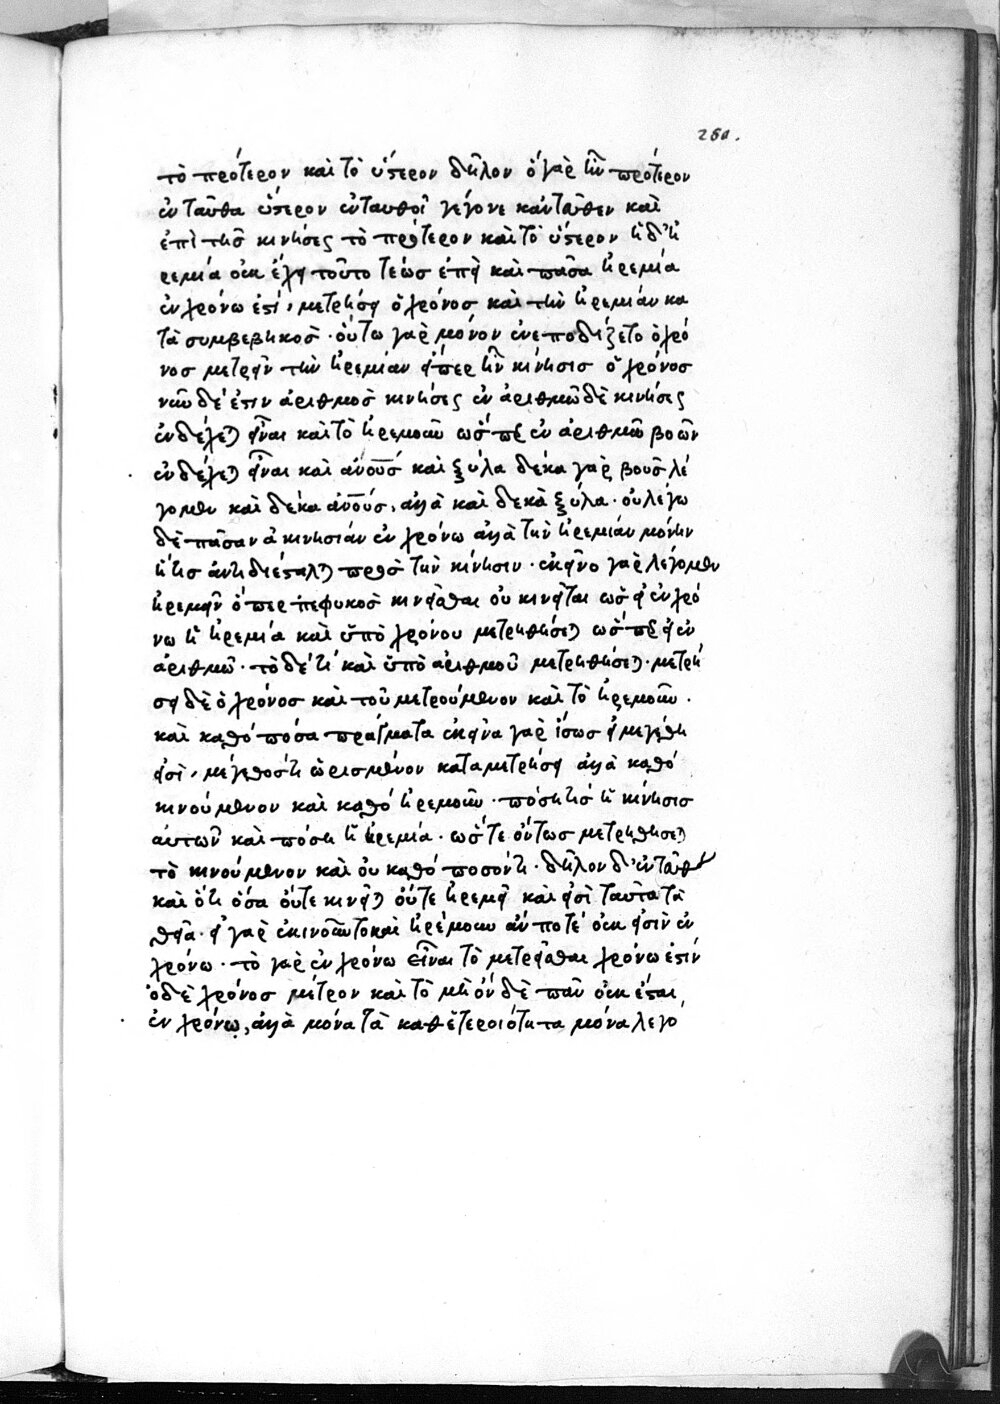 260.
τὸ πρότερον καὶ τὸ ὕστερον δῆλον ὃ γὰρ ἦν πρότερον
ἐνταῦθα ὕστερον ἐνταυθοῖ γέγονε κἀνταῦθεν καὶ
ἐπὶ τῆς κινήσεως τὸ πρότερον καὶ τὸ ὕστερον ἡ δ' ἠ
ρεμία οὐκ ἔχει τοῦτο τέως ἐπεὶ καὶ πᾶσα ἠρεμία
ἐν χρόνω ἐστί, μετρήσει ὁ χρόνος καὶ τὴν ἠρεμίαν κα
τὰ συμβεβηκὸς · οὕτω γὰρ μόνον ἐνεποδίζετο ὁ χρό
νος μετρεῖν τὴν ἠρεμίαν εἴπερ ἦν κίνησις ὁ χρόνος
νῦν δέ ἐστιν ἀριθμὸς κινήσεως ἐν ἀριθμῶ δὲ κινήσεως
ἐνδέχεται εἶναι καὶ τὸ ἠρεμοῦν ὥσπερ ἐν ἀριθμῶ βοῶν
ἐνδέχεται εἶναι καὶ ἀνους καὶ ξύλα δέκα γὰρ βοῦς λέ
γομεν καὶ δέκα ἀνους, ἀλλὰ καὶ δέκα ξύλα · οὐ λέγω
δὲ πᾶσαν ἀκινησίαν ἐν χρόνω ἀλλὰ τὴν ἠρεμίαν μόνην
ἥτις ἀντιδιέσταλται πρὸς τὴν κίνησιν · ἐκεῖνο γὰρ λέγομεν
ἠρεμεῖν ὅπερ πεφυκὸς κινεῖσθαι οὐ κινεῖται ὡς εἰ ἐν χρό
νω ἡ ἠρεμία καὶ ὑπὸ χρόνου μετρηθήσεται ὥσπερ εἰ ἐν
ἀριθμῶ · τὸ δέ τι καὶ ὑπὸ ἀριθμοῦ μετρηθήσεται · μετρή
σει δὲ ὁ χρόνος καὶ τοῦ μετρούμενον καὶ τὸ ἠρεμοῦν ·
καὶ καθό πόσα πράγματα ἐκεῖνα γὰρ ἴσως εἰ μεγέθη
εἰσὶ, μέγεθός τι ὡρισμένον καταμετρήσει ἀλλὰ καθό
κινούμενον καὶ καθό ἠρεμοῦν · πόση τίς ἡ κίνησις
αὐτῶν καὶ πόση ἡ ἠρεμία · ὥστε ὄντως μετρηθήσεται
τὸ κινούμενον καὶ οὐ καθό ποσόν τι · δῆλον δ' ἐνταῦθ
καὶ ὅτι ὅσα οὔτε κινεῖται οὔτε ἠρεμεῖ καὶ εἰσὶ ταῦτα τὰ
θεῖα · εἰ γὰρ ἐκινοῦντο καὶ ἠρέμουν ἄν ποτέ οὐκ εἰσὶν ἐν
χρόνω · τὸ γὰρ ἐν χρόνω εἶναι τὸ μετρεῖσθαι χρόνω ἐστίν
ὁ δὲ χρόνος μέτρον καὶ τὸ μὴ ὂν δὲ πᾶν οὐκ ἔσται
ἐν χρόνῳ, ἀλλὰ μόνα τὰ καθ ἑτεροιότητα μόνα λεγό